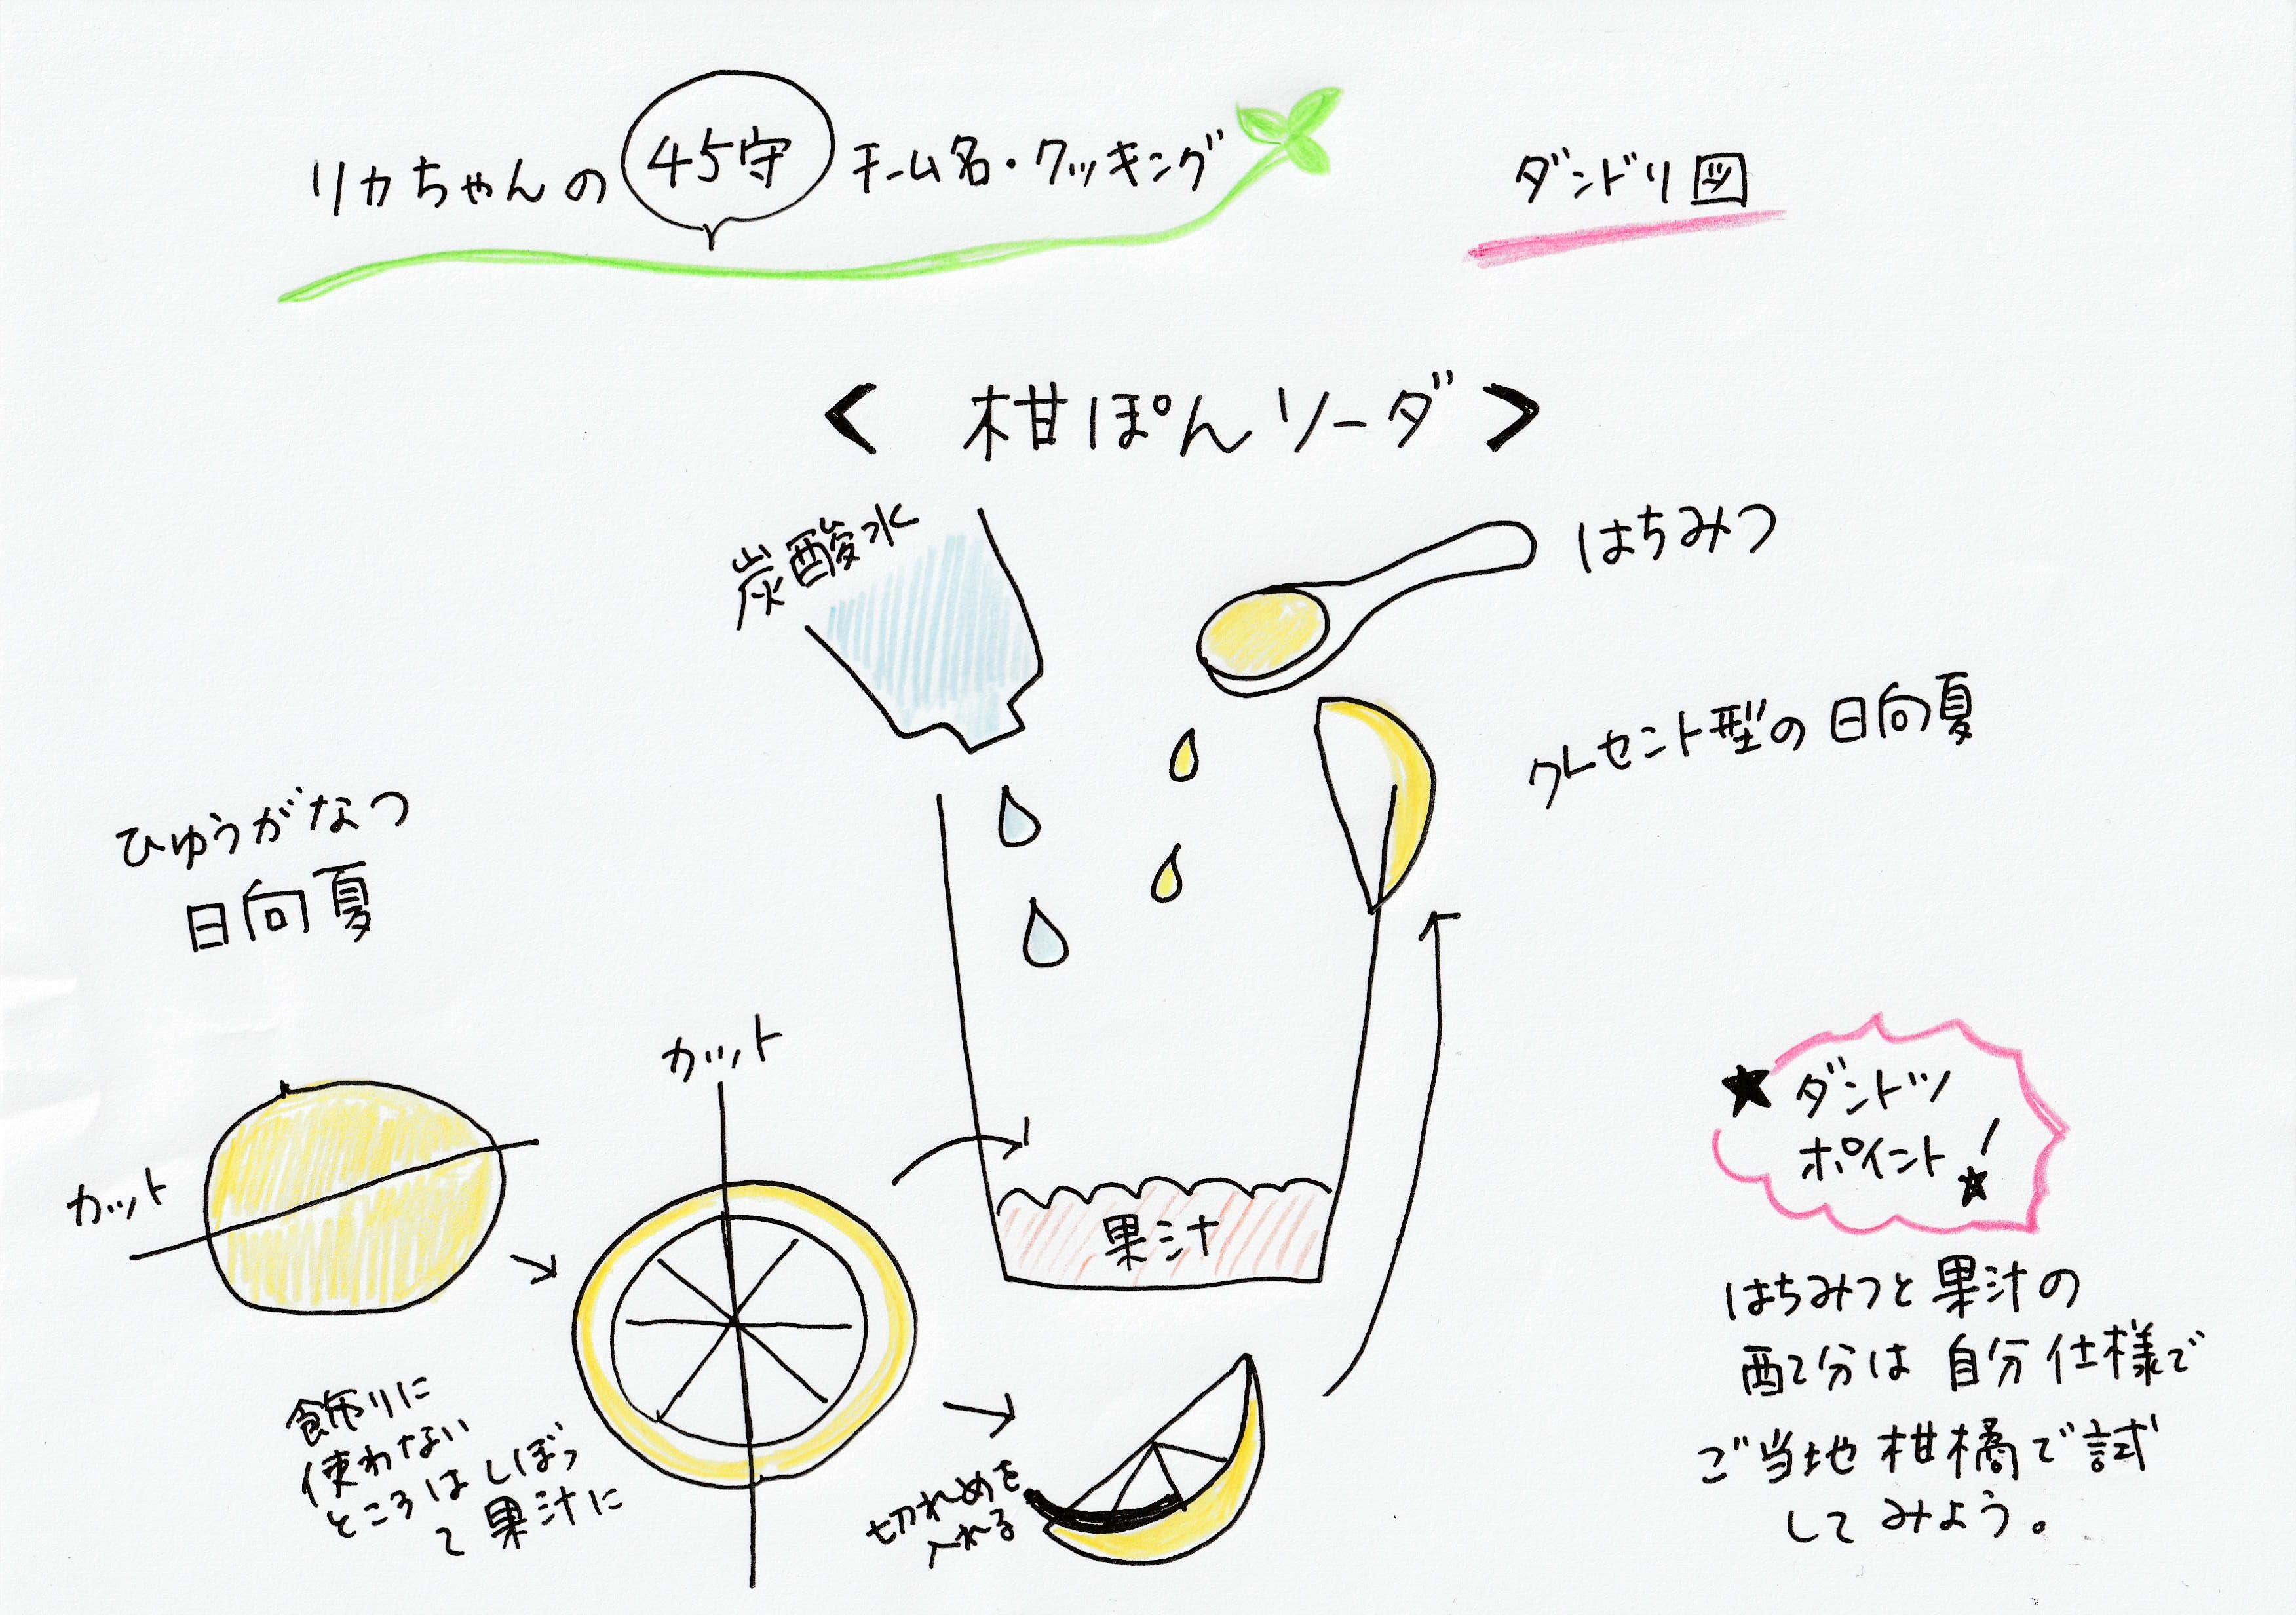 リカちゃんの 45守 チーム名・クッキング
ダンドリ図
< 柑ぽんソーダ >
炭酸水
はちみつ
クレセント型の日向夏
ひゅうがなつ
日向夏
カット
カット
果汁
飾りに
使わない
ところはしぼっ
て果汁に
切れめを
入れる
★ダンドツ
ポイント!★
はちみつと果汁の
配分は自分仕様で
ご当地柑橘で試
してみよう。